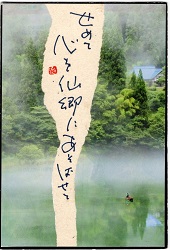 せめて
心を仙郷にあそばせて